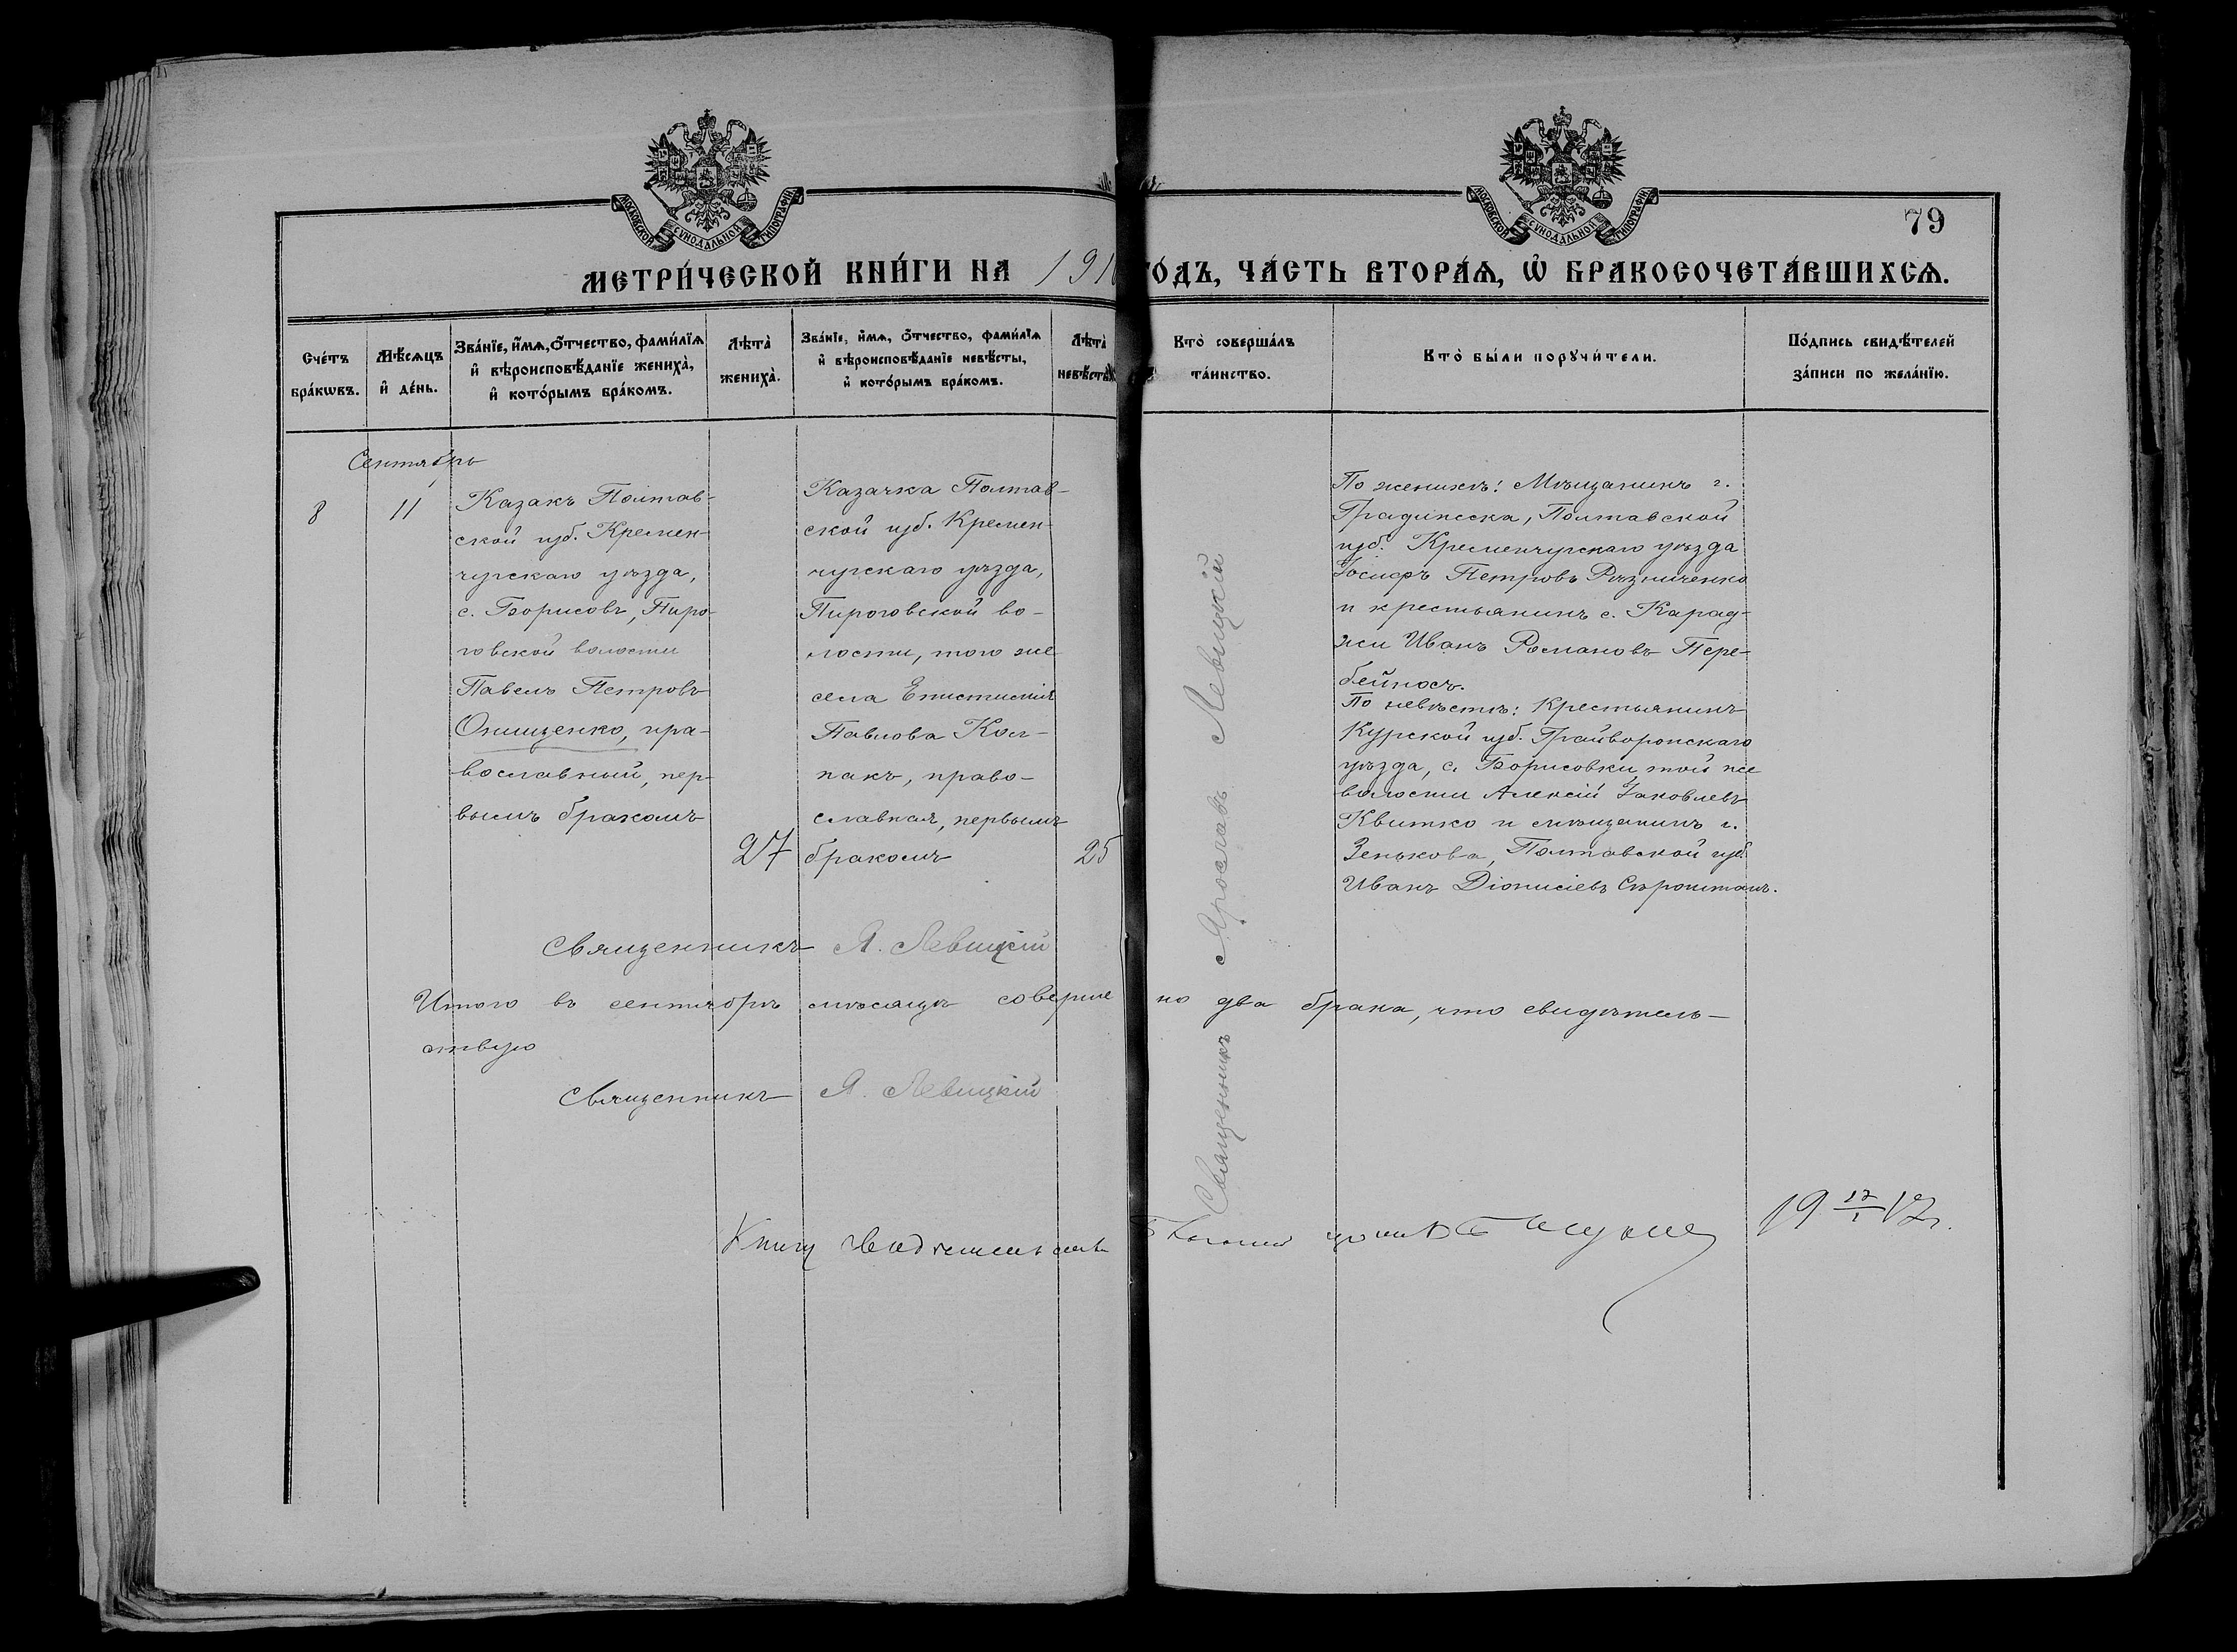 МОСКОВСКОЙ СУНОДАЛЬНОЙ ТИПОГРАФІИ
МОСКОВСКОЙ СУНОДАЛЬНОЙ ТИПОГРАФІИ
79
МЕТРИ́ЧЕСКОЙ КНИ́ГИ НА 191
ГО́ДЪ, ЧА́СТЬ ВТОРА́Я, Ѡ БРАКОСОЧЕТА́ВШИХСЯ.
Сче́тъ бра́кѡвъ.
Мѣ́сяцъ и де́нь.
Зва́нїе, и́мя, о́тчество, фами́лїя
и вѣроисповѣ́данїе жениха̀,
и кото́рымъ бра́комъ.
Лѣта̀ жениха̀.
Зва́нїе, и́мя, о́тчество, фами́лїя
и вѣроисповѣ́данїе невѣ́сты,
и кото́рымъ бра́комъ.
Лѣта̀ невѣ́сты
Кто̀ соверша́лъ
та́инство.
Кто̀ бы́ли порꙋчи́тели.
По́дпись свидѣ́телей
за́писи по жела́нїю.
Сентябрь
8
11
Казакъ Полтав-
ской губ. Кремен-
чугскаго уѣзда,
с. Борисовъ, Пиро-
говской волости
Павелъ Петровъ
Онищенко, пра-
вославный, пер-
вымъ бракомъ
27
Казачка Полтав-
ской губ. Кремен-
чугскаго уѣзда,
Пироговской во-
лости, того же
села Епистимія
Павлова Кол-
пакъ, право-
славная, первымъ
бракомъ
25
Священникъ Ярославъ Левицкій
По женихѣ: Мѣщанинъ г.
Градижска, Полтавской
губ. Кременчугскаго уѣзда
Іосифъ Петровъ Рѣзниченко
и крестьянинъ с. Карад-
жи Иванъ Романовъ Пере-
бейносъ.
По невѣстѣ: Крестьянинъ
Курской губ. Грайворонскаго
уѣзда, с. Борисовки, той же
волости Алексій Іаковлевъ
Квитко и мѣщанинъ г.
Зенькова, Полтавской губ.
Иванъ Діонисіевъ Сѣроштанъ.
Священникъ Я. Левицкій
Итого въ сентябрѣ мѣсяцѣ соверше но два брака, что свидѣтель-
ствую
Священникъ Я. Левицкій
Книгу
19 17/I 17 г.